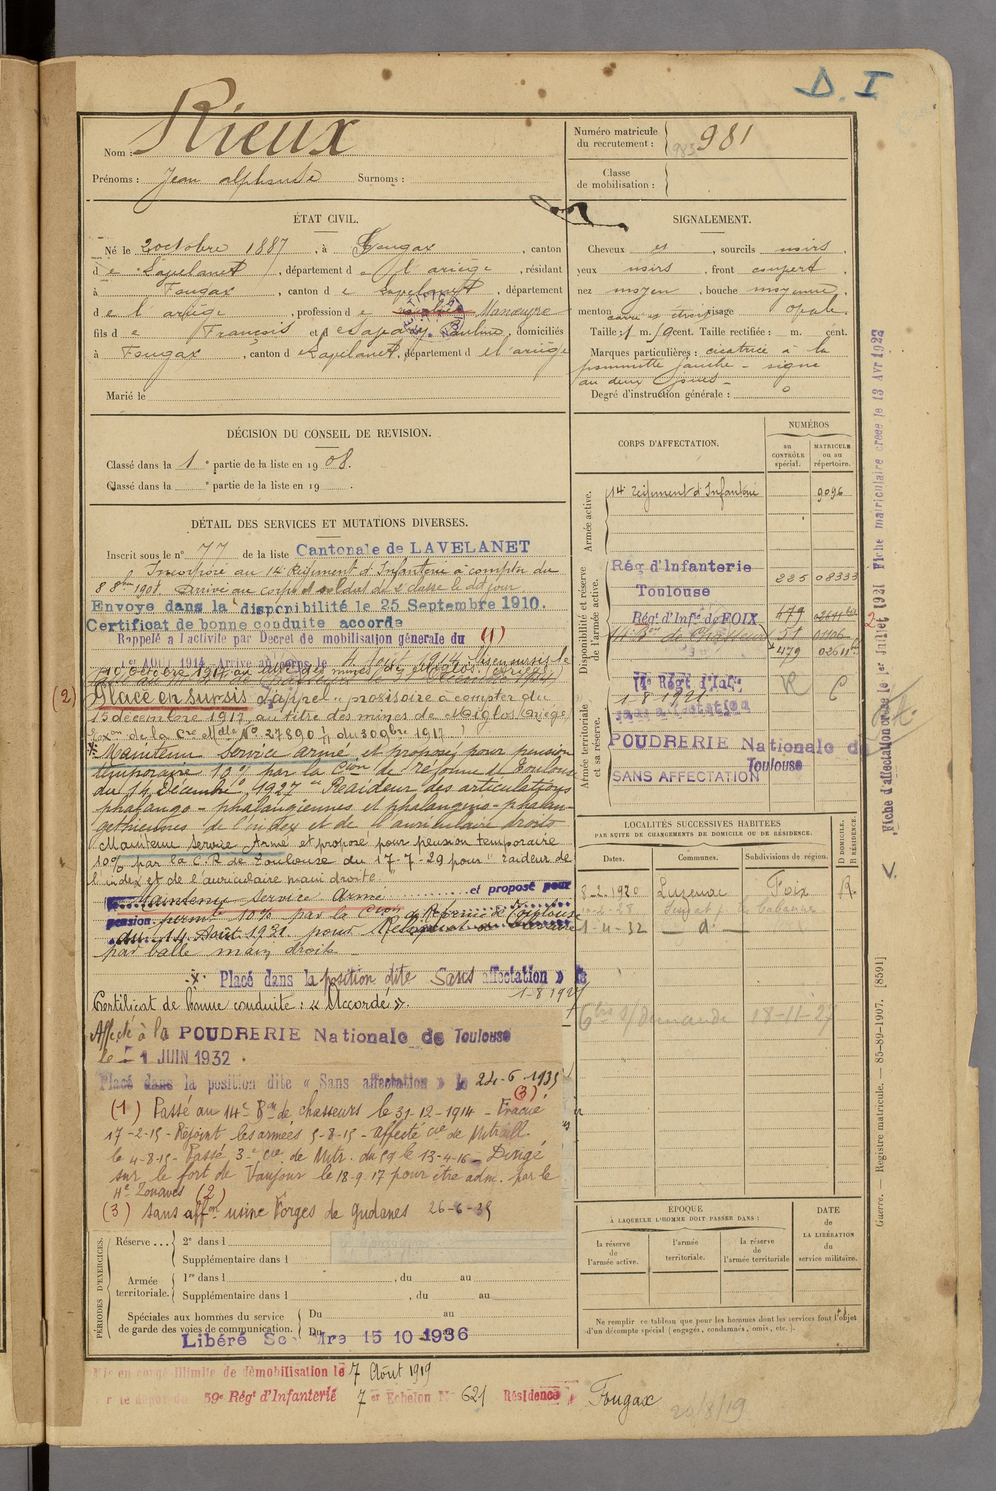 D. I
Nom : Rieux
Prénoms : Jean alphonse Surnoms :
Numéro matricule
du recrutement : 981
Classe
de mobilisation :
ÉTAT CIVIL.
Né le 2 octobre 1887, à Fougax, canton
de Lavelanet, département de l'ariège, résidant
à Fougax, canton de Lavelanet, département
de l'ariège, profession de Manœuvre
fils de François et de Pauline, domiciliés
à Fougax, canton de Lavelanet, département de l'ariège
Marié le
SIGNALEMENT.
Cheveux et, sourcils noirs,
yeux noirs, front couvert,
nez moyen, bouche moyenne,
menton visage ovale.
Taille : 1 m. cent. Taille rectifiée : m. cent.
Marques particulières : cicatrice à la
pommette gauche - signe
au deux
Degré d'instruction générale : 0
DÉCISION DU CONSEIL DE REVISION.
Classé dans la 1e partie de la liste en 1908.
Classé dans la e partie de la liste en 19 .
DÉTAIL DES SERVICES ET MUTATIONS DIVERSES.
Inscrit sous le n° 77 de la liste Cantonale de LAVELANET
Incorporé au 14e Régiment d'Infanterie à compter du
8 8bre 1908. Arrivé au corps et soldat de 2e classe le dit jour
Envoyé dans la disponibilité le 25 Septembre 1910.
Certificat de bonne conduite accordé
Rappelé à l'activité par Decret de mobilisation générale du (1)
1er AOUT 1914. Arrivé au corps le
(2) Placé en sursis d'appel provisoire à compter du
15 décembre 1917, au titre des mines de Miglos (Ariège)
No 27890 du 30 9bre 1917
Maintenu Service armé et proposé pour pension
temporaire 10% par la Cion de réforme de Toulouse
du 14 Décembre 1927 " Raideur des articulations
phalango-phalangiennes et phalangino-phalan-
gettiennes de l'index et de l'auriculaire droits
Maintenu Service Armé et proposé pour pension temporaire
10% par la C.R de Toulouse du 17-7-29 pour " raideur de
l'index et de l'auriculaire main droite.
Maintenu service armé et proposé pour
pension permte 10% par la Cion de Réforme de Toulouse
du 14 Août 1931 pour
par balle main droite
Placé dans la position dite Sans affectation » le
1-8 1927
Certificat de Bonne conduite : « Accordé ».
Affecté à la POUDRERIE Nationale de Toulouse
le 1 JUIN 1932.
Placé dans la position dite « Sans affectation » le 24-6-1935
(3)
(1) Passé au 14e Bon de chasseurs le 31-12-1914 - Evacué
17-2-15 - Rejoint les armées 5-8-15 - affecté Cie de Mitraill.
le 4-8-15 - Passé 3e Cie de Mitr. du 59 le 13-4-16 - Dirigé
sur le fort de Vaujour le 18-9-17 pour être adm. par le
4e Zouaves (2)
(3) Sans affon usine Forges de Gudanes 26-6-35
CORPS D'AFFECTATION.
NUMÉROS
au
CONTRÔLE
spécial.
MATRICULE
ou au
répertoire.
Armée active.
14e Régiment d'Infanterie 9096
Disponibilité et réserve
de l'armée active.
Rég d'Infanterie
Toulouse 235 08333
Régt d'Infie de FOIX 479
14e Bon de Chasseurs 51
479
Armée territoriale
et sa réserve.
14e Régt d'Infie
1-8 1921
sans affectation
POUDRERIE Nationale de
Toulouse
SANS AFFECTATION
LOCALITÉS SUCCESSIVES HABITÉES
PAR SUITE DE CHANGEMENTS DE DOMICILE OU DE RÉSIDENCE.
Dates. Communes. Subdivisions de région. D DOMICILE. R RÉSIDENCE.
8-2-1920 Luzenac Foix R.
1-4-32 d°
18-11-27
ÉPOQUE
À LAQUELLE L'HOMME DOIT PASSER DANS :
la réserve
de
l'armée active.
l'armée
territoriale.
la réserve
de
l'armée territoriale
DATE
de
LA LIBÉRATION
du
service militaire.
Ne remplir ce tableau que pour les hommes dont les services font l'objet
d'un décompte spécial (engagés, condamnés, omis, etc.).
PÉRIODES D'EXERCICES.
Réserve ... 2e dans l
Supplémentaire dans l
Armée
territoriale.
1re dans l , du au
Supplémentaire dans l , du au
Spéciales aux hommes du service
de garde des voies de communication.
Du au
Du
Libéré 15 10 1936
en congé illimité de démobilisation le 7 Août 1919
59e Régt d'Infanterie 7 er Echelon No 621 Résidence Fougax
20/8/19
Fiche d'affectation créée le 1er Juillet 1921 Fiche matriculaire créée le 13 Avr 1922
Guerre. — Registre matricule. — 85-89-1907. [8591]